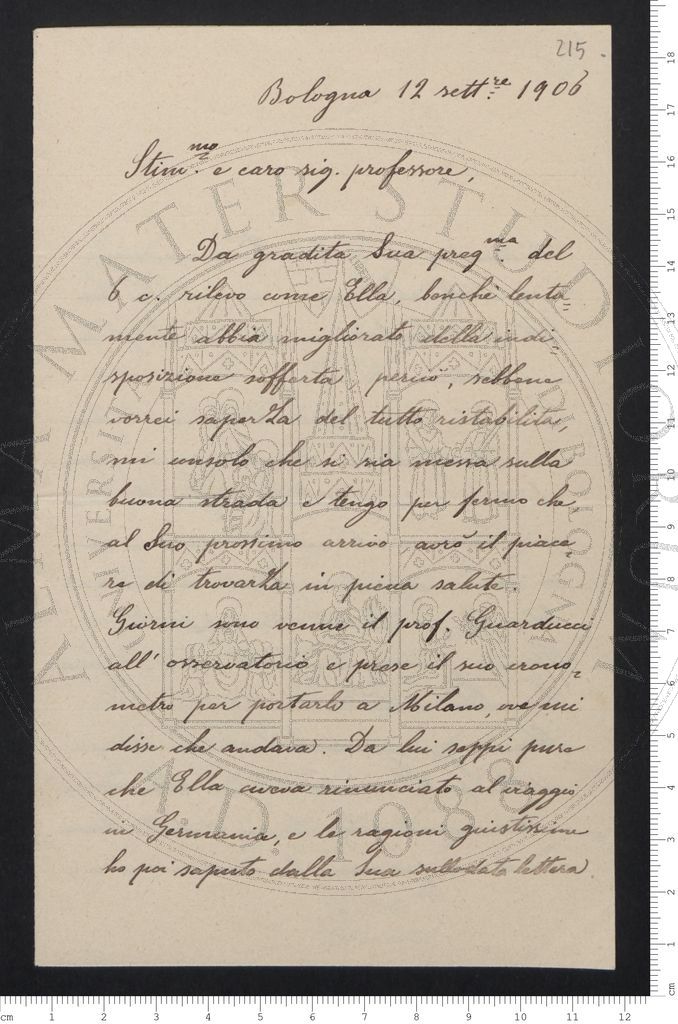 215.
Bologna 12 sett:re 1906
Stim.mo e caro sig. professore,
Da gradita Sua preg.ma del
6 c. rilevo come Ella, benchè lenta=
mente abbia migliorato della indi=
sposizione sofferta, perciò, sebbene
vorrei saperLa del tutto ristabilita,
mi consolo che si sia messa sulla
buona strada e tengo per fermo che,
al Suo prossimo arrivo avrò il piace=
re di trovarLa in piena salute.
Giorni sono venne il prof. Guarducci
all'osservatorio e prese il suo crono=
metro per portarlo a Milano, ove mi
disse che andava. Da lui seppi pure
che Ella aveva rinunciato al viaggio
in Germania, e le ragioni giustissime
ho poi saputo dalla Sua sullodata lettera.
ALMA MATER STUDIORUM
A.D. 1088